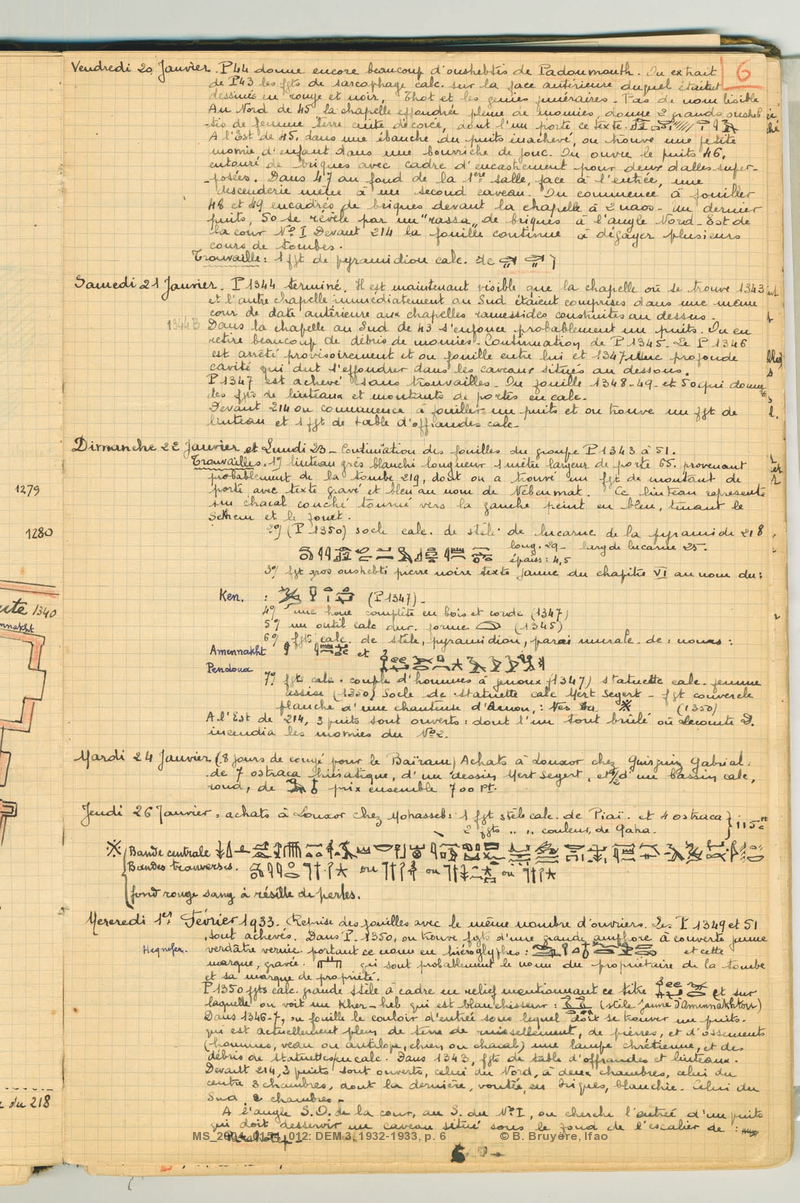 6
Vendredi 20 Janvier. P44 donne encore beaucoup d'oushebtis de Padoumouth. On extrait
de P43 les fgts de sarcophage calc. sur la face antérieure duquel étaient
dessinés en rouge et noir, Thot et les génies funéraires. Pas de nom lisible
Au Nord de 45 la chapelle effondrée pleine de momies, donne 2 grands ousheb
-tis de femme terre cuite décorée, dont l'un porte ce texte
A l'Est de 45, dans une ébauche du puits inachevé, on trouve une petite
momie d'enfant dans une bourriche de jonc. On ouvre le puits 46,
entouré de briques avec cadre d'encastrement pour deux dalles super-
-posées. Dans 47 au fond de la 1ère salle, face à l'entrée, une
descenderie mène à un second caveau. On commence à fouiller
48 et 49 encadrés de briques devant la chapelle à 2 naos. Un dernier
puits, 50 se révèle par un "rassa" de briques à l'angle Nord-Est de
la cour N° I Devant 214 la fouille continue à dégager plusieurs
cours de tombes.
Trouvaille: 1 fgt de pyramidion calc. de
Samedi 21 Janvier. P 1344 terminé. Il est maintenant visible que la chapelle où se trouve 1343
et l'autre chapelle immédiatement au Sud étaient comprises dans une même
cour de date antérieure aux chapelles ramessides construites au dessus.
1344 B Dans la chapelle au Sud de 43 s'enfonce probablement un puits. On en
retire beaucoup de débris de momies. Continuation de P 1345. Le P 1346
est arrêté provisoirement et on fouille entre lui et 1347 une profonde
cavité qui dut s'effondrer dans les caveaux situés au dessous.
P 1347 est achevé sans trouvailles. On fouille 1348-49 et 50 qui donne
des fgts de linteaux et montants de portes en calc.
Devant 214 on commence à fouiller un puits et on trouve un fgt de
linteau et 1 fgt de table d'offrandes calc.
Dimanche 22 Janvier et Lundi 23 - Continuation des fouilles du groupe P 1343 à 51.
Trouvailles. 1°/ linteau grès blanchi longueur 1 mètre largeur de porte 65. provenant
probablement de la tombe 219, dont on a trouvé un fgt de montant de
porte avec texte gravé et bleu au nom de Nebenmat. Ce linteau représente
un chacal couché tourné vers la gauche peint en bleu, tenant le
Sekhem et le fouet.
2°/ (P 1350) socle calc. de stèle de lucarne de la pyramide 218
long. 29 - larg de lucarne 25.
épaiss: 4,5
3°/ fgt gros oushebti pierre noire texte jaune du chapitre VI au nom du:
Ken. (P 1347) -
4°/ une houe complète en bois et corde (1347)
5°/ un outil calc dur. forme (1345)
6°/ fgts calc. de stèle, pyramidion, paroi murale. de: noms:
Amennakht et
Pendoua
7°/ fgts calc. couple d'hommes à genoux (1347) statuette calc. femme
assise (1350) Socle de statuette calc Mert Seger - fgt couvercle
planche d'une chanteuse d'Amon, : (1350)
A l'Est de 214, 3 puits sont ouverts: dont l'un tout brûlé où Lecomte D.
incendia les momies du N° 2.
Mardi 24 Janvier (8 jours de congé pour le Baïram) Achats à Louxor chez Guirguis Gabrial:
de 7 ostraca hiératique, d'un dessin Mert Seger, et 1/2 d'un bassin calc,
rond, de prix ensemble 700 Pt.
Jeudi 26 Janvier: achats à Louxor chez Mohasseb: 1 fgt stèle calc. de Piaï. et 4 ostraca
2 fgts " " couleur, de Qaha.
Bande centrale
Bandes transverses. ou ou ou
fond rouge sang à résille de perles.
Mercredi 1er Février 1933. Reprise des fouilles avec le même nombre d'ouvriers. Les P 1349 et 51
sont achevés. Dans P. 1350, on trouve fgts d'une grande amphore à couverte jaune
Heqnefer. verdâtre vernie portant ce nom en hiéroglyphes: et cette
marque, gravée qui sont probablement le nom du propriétaire de la tombe
et sa marque de propriété.
P 1350 fgts calc. grande stèle à cadre en relief mentionnant ce titre et sur
laquelle on voit un Kher-heb qui est blanchisseur: (stèle jaune d'Aminnakhtou)
Dans 1346-7, on fouille le couloir d'entrée sous lequel doit se trouver un puits.
qui est actuellement plein de terre de ruissellement, de pierres, et d'ossements
(hommes, veau ou antilope, chien ou chacal) une lampe chrétienne, et des
débris de statuettes en calc. Dans 1343, fgts de table d'offrandes et linteaux.
Devant 214, 3 puits sont ouverts, celui du Nord, à deux chambres, celui du
centre 3 chambres, dont la dernière, voûtée en briques, blanchie. Celui du
Sud, 2 chambres -
A l'angle S.O. de la cour, au S. du N° I, on cherche l'entrée d'un puits
qui doit desservir un caveau situé sous le fond de l'escalier de:
1279
1280
1340
du 218
MS_2004_0151_012: DEM 3, 1932-1933, p. 6 © B. Bruyère, Ifao